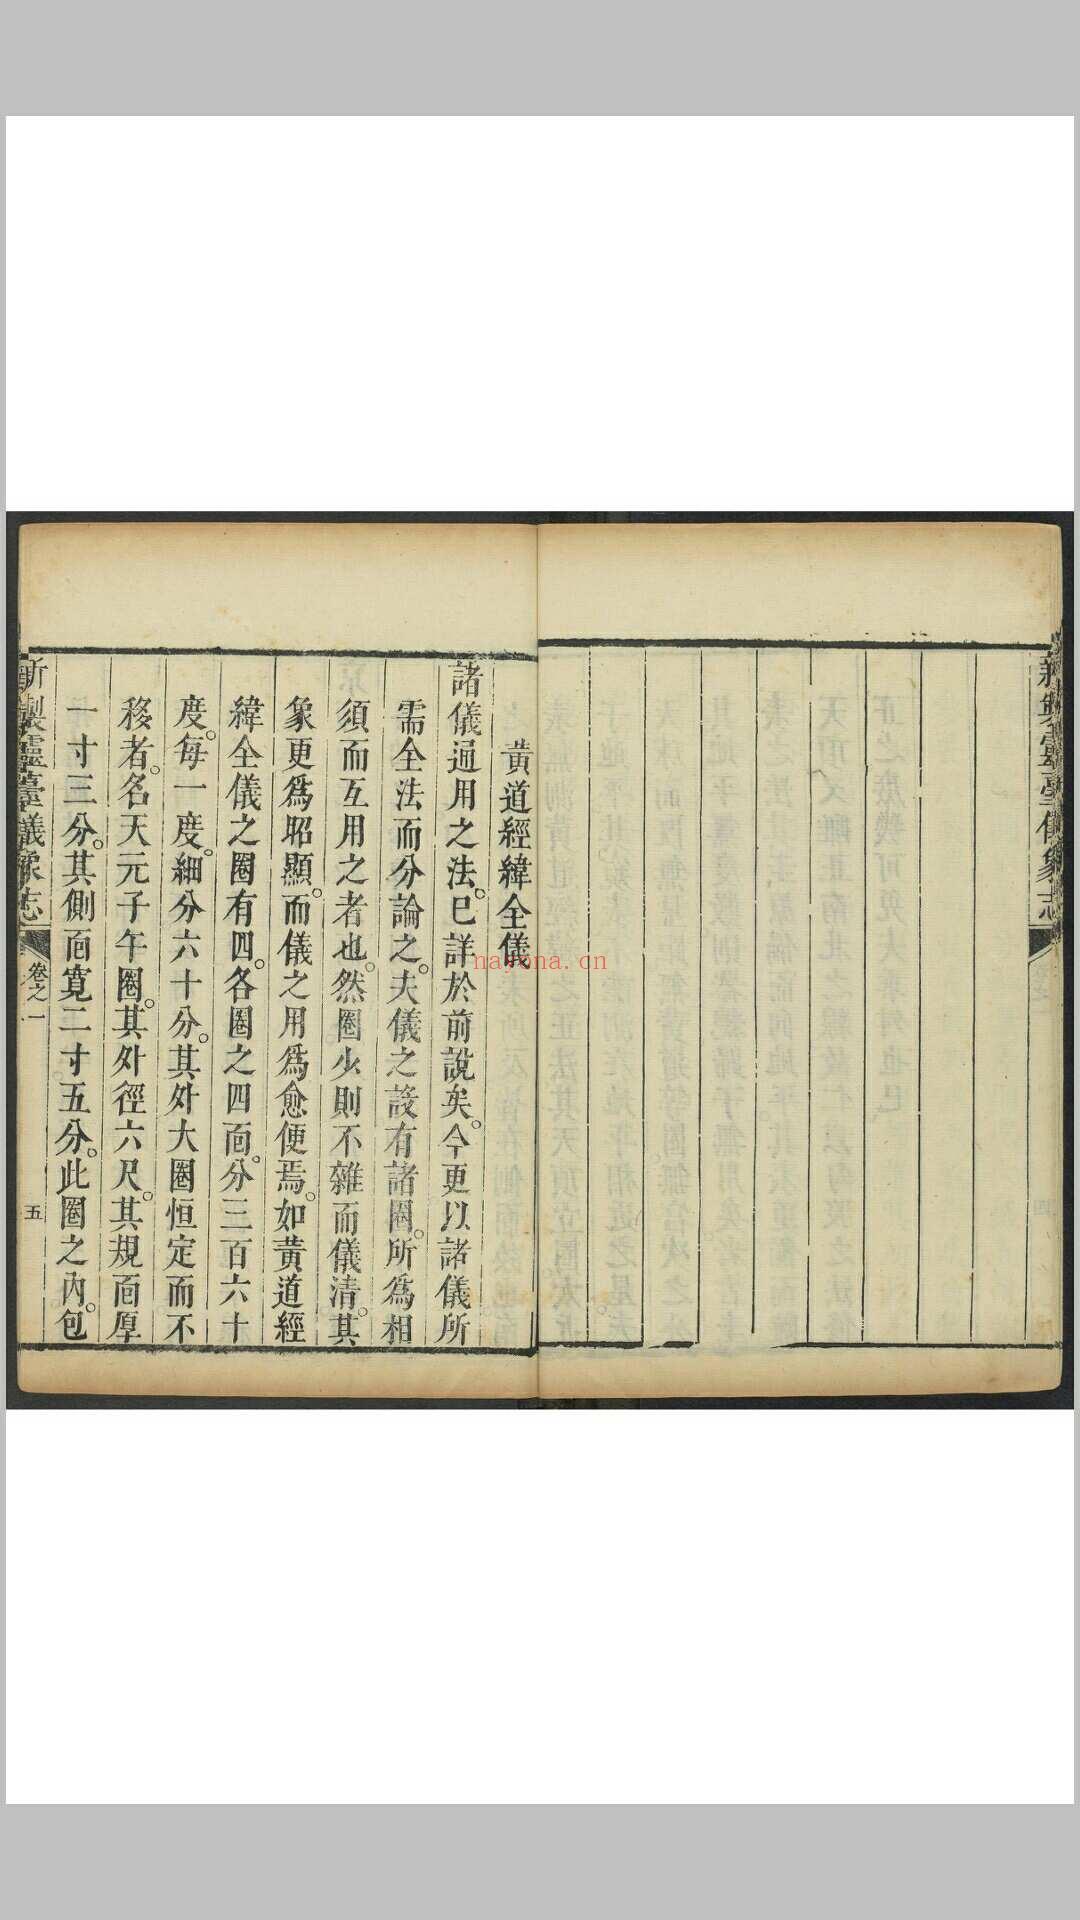 新製靈臺儀象志
黃道經緯全儀
諸儀通用之法。已詳於前說矣。今更以諸儀所
需全法而分論之。夫儀之設有諸圈。所爲相
須而互用之者也。然圈少則不雜而儀清。其
象更爲昭顯。而儀之用爲愈便焉。如黃道經
緯全儀之圈有四。各圈之四面。分三百六十
度。每一度。細分六十分。其外大圈恒定而不
移者。名天元子午圈。其外徑六尺。其規面厚
一寸三分。其側面寬二寸五分。此圈之內。包
新製靈臺儀象志
卷之一
五
nayona.cn